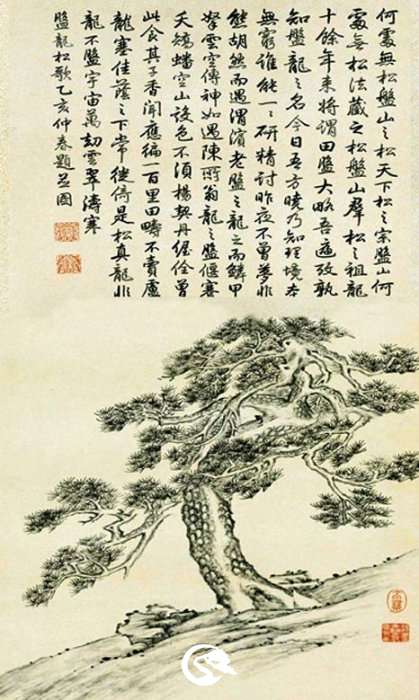 何處無松盤山之松天下松之宗盤山何
處無松法藏之松盤山羣松之祖龍
十餘年来將謂田盤大略吾遍攷孰
知盤龍之名今日吾方曉乃知理境本
無窮誰能一一研精討昨夜不曾夢非
熊胡然而遇渭濱老盤之龍之而鱗甲
拏雲空傳神如遇陳所翁龍之盤偃蹇
夭矯蟠空山設色不須楊契丹偓佺曾
此食其子香聞應徧一百里田疇不賣盧
龍塞佳蔭之下常徙倚是松真龍非
龍不盤宇宙萬劫雲翠濤寒
盤龍松歌乙亥仲春題並圖